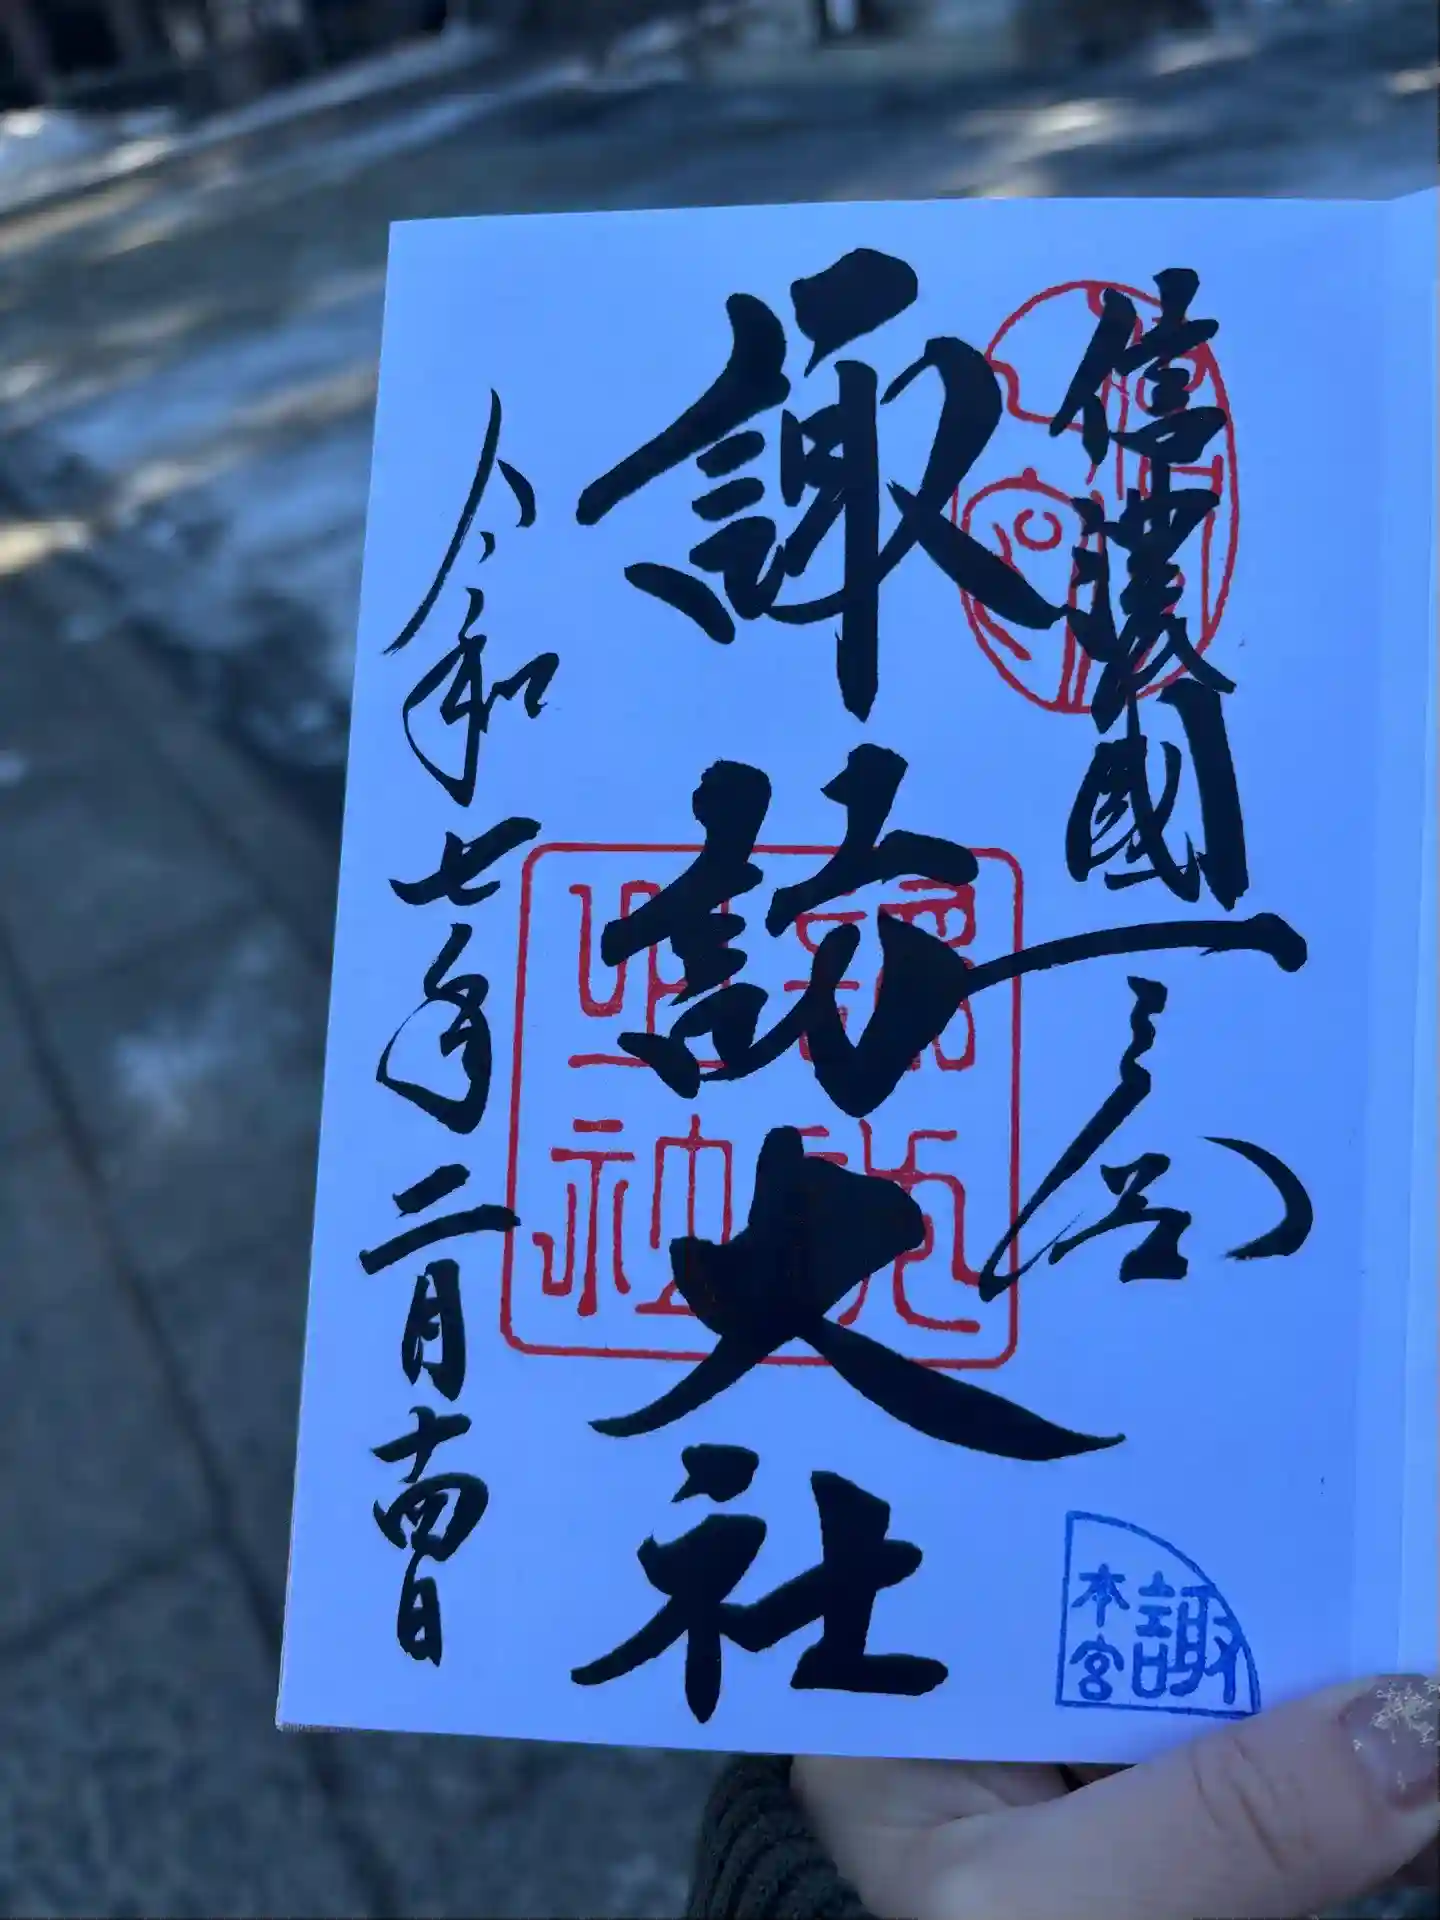 信濃國一之宮
諏訪大社
令和七年二月十四日
諏訪
明神
諏
本宮